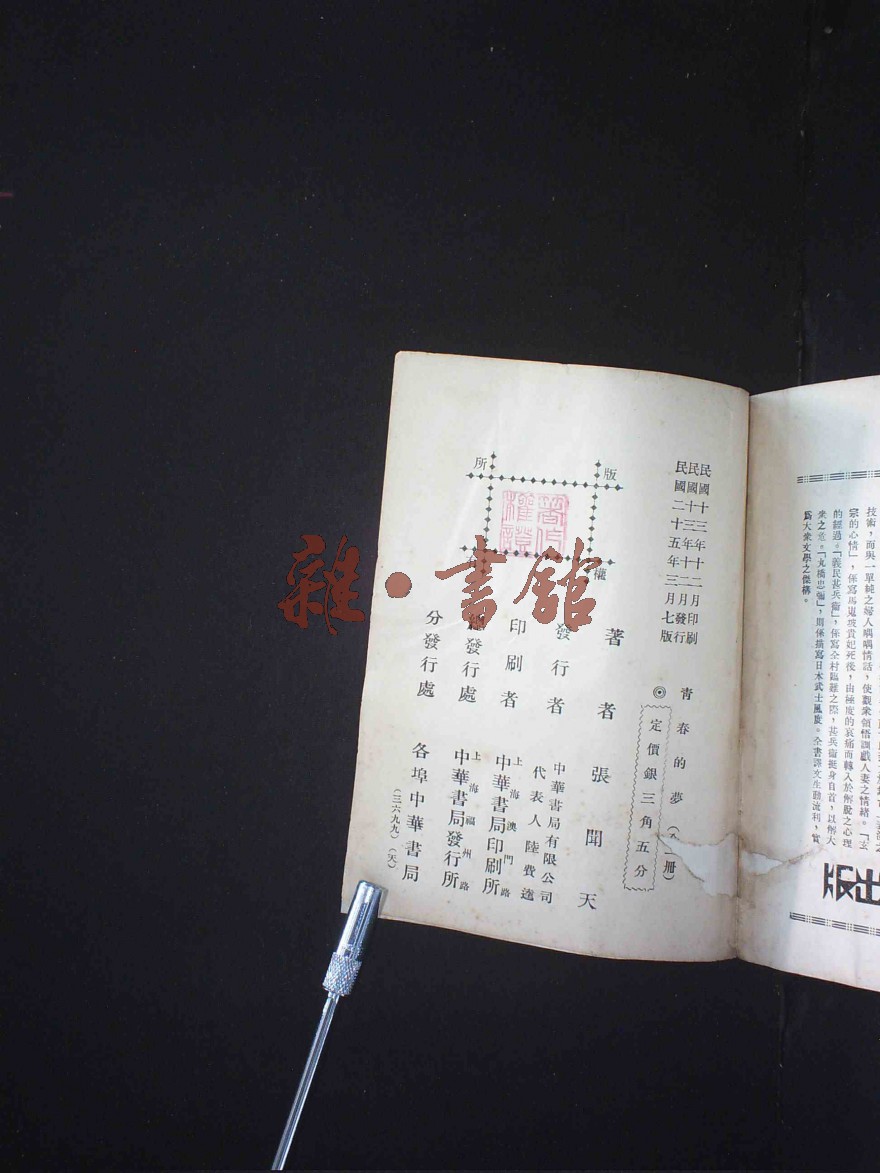 民國十三年十二月印刷
民國十三年十二月發行
民國二十五年三月七版
青春的夢（冊）
◎定價銀三角五分
版權所有
著作權證
著者 張聞天
發行者 中華書局有限公司
代表人 陸費逵
印刷者 上海澳門路
中華書局印刷所
總發行處 上海福州路
中華書局發行所
分發行處 各埠中華書局
（三六九九）（天）
雜·書館
技術，而吳一單純之婦人喁喁情話，使觀衆領悟調戲人妻之情緒。「玄
宗的心情」，係寫馬嵬坡貴妃死後，由極度的哀痛而轉入於解脫之心理
的經過。「義民甚兵衞」，係寫全村臨難之際，甚兵衞挺身自首，以解大
衆之危。「丸橋忠彌」，則係描寫日本武士風度。全書譯文生動流利，實
爲大衆文學之傑構。
出版